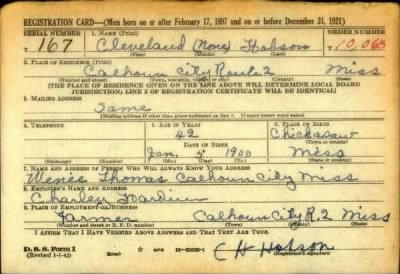 REGISTRATION CARD—(Men born on or after February 17, 1897 and on or before December 31, 1921)
SERIAL NUMBER 1. NAME (Print) ORDER NUMBER
T 167 Cleveland (None) Hobson 10,065
(First) (Middle) (Last)
2. PLACE OF RESIDENCE (Print)
Calhoun City Route 2 Miss
(Number and street) (Town, township, village, or city) (County) (State)
[THE PLACE OF RESIDENCE GIVEN ON THE LINE ABOVE WILL DETERMINE LOCAL BOARD
JURISDICTION; LINE 2 OF REGISTRATION CERTIFICATE WILL BE IDENTICAL]
3. MAILING ADDRESS
Same
(Mailing address if other than place indicated on line 2. If same insert word same)
4. TELEPHONE 5. AGE IN YEARS 6. PLACE OF BIRTH
42 Chickasaw
DATE OF BIRTH (Town or county)
Jan. 5 1900 Miss
(Exchange) (Number) (Mo.) (Day) (Yr.) (State or country)
7. NAME AND ADDRESS OF PERSON WHO WILL ALWAYS KNOW YOUR ADDRESS
Thomas Calhoun City Miss
8. EMPLOYER'S NAME AND ADDRESS
Charley
9. PLACE OF EMPLOYMENT OR BUSINESS
Farmer Calhoun City R. 2 Miss
(Number and street or R. F. D. number) (Town) (County) (State)
I AFFIRM THAT I HAVE VERIFIED ABOVE ANSWERS AND THAT THEY ARE TRUE.
D. S. S. Form 1
(Revised 1-1-42) (over)
C H Hobson
(Registrant's signature)